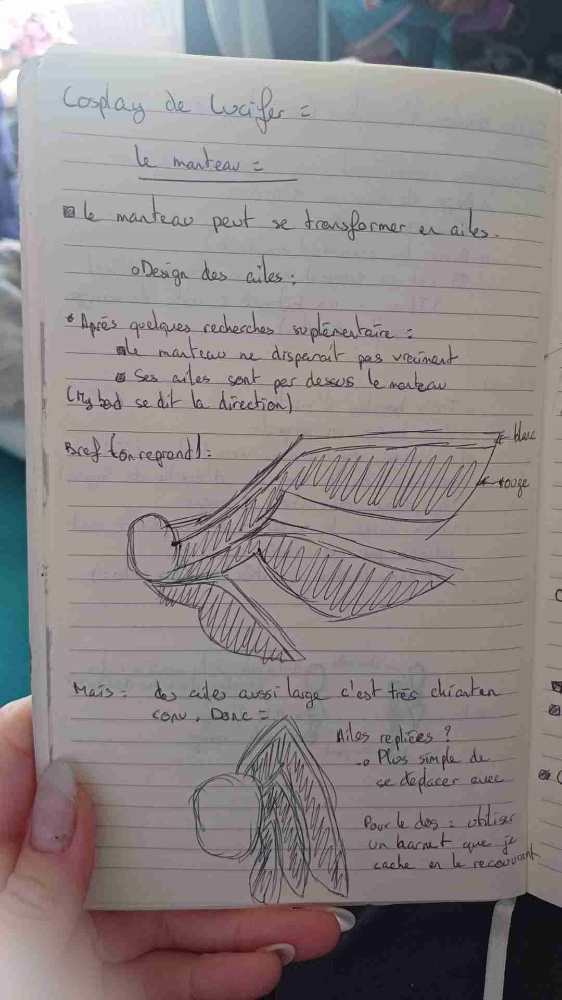 Cosplay de Lucifer =
le manteau =
le manteau peut se transformer en ailes.
Design des ailes :
Après quelques recherches suplémentaire :
le manteau ne disparait pas vraiment
Ses ailes sont par dessus le manteau
(My bad se dit la direction)
Bref (on reprend) :
blanc
rouge
Mais : des ailes aussi large c'est très chiant en
conv. Donc =
Ailes repliées ?
Plus simple de
se déplacer avec
Pour le dos : utiliser
un harnet que je
cache en le recouvrant